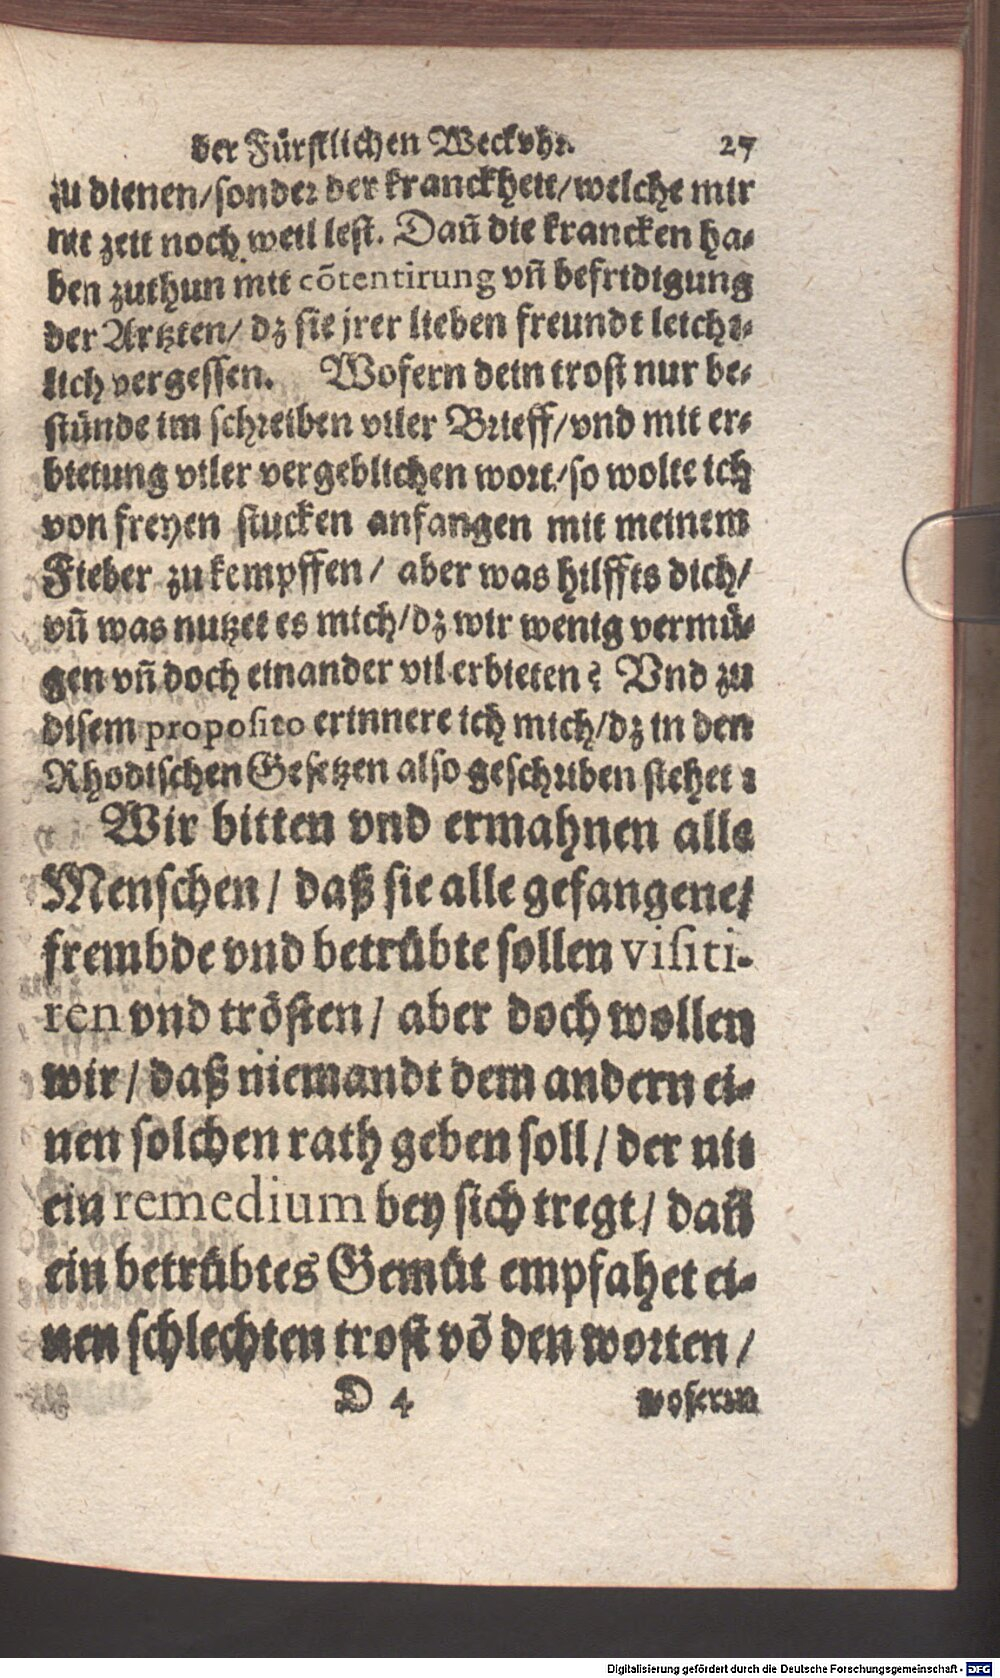 der Fürstlichen Weckvhr. 27
zu dienen/sonder der kranckheit/welche mir
nit zeit noch weil lest. Dañ die krancken ha-
ben zuthun mit cõtentirung vñ befridigung
der Artzten/ dz sie jrer lieben freundt leicht-
lich vergessen. Wofern dein trost nur be-
stünde im schreiben viler Brieff/vnd mit er-
bietung viler vergeblichen wort/so wolte ich
von freyen stucken anfangen mit meinem
Fieber zu kempffen/ aber was hilffts dich/
vñ was nutzet es mich/dz wir wenig vermü-
gen vñ doch einander vil erbieten? Vnd zu
disem proposito erinnere ich mich/dz in den
Rhodischen Gesetzen also geschriben stehet:
Wir bitten vnd ermahnen alle
Menschen/ daß sie alle gefangene/
frembde vnd betrübte sollen visiti-
ren vnd trösten/ aber doch wollen
wir/ daß niemandt dem andern ei-
nen solchen rath geben soll/ der nit
ein remedium bey sich tregt/ dañ
ein betrübtes Gemüt empfahet ei-
nen schlechten trost võ den worten/
D 4 wofern
Digitalisierung gefördert durch die Deutsche Forschungsgemeinschaft - DFG